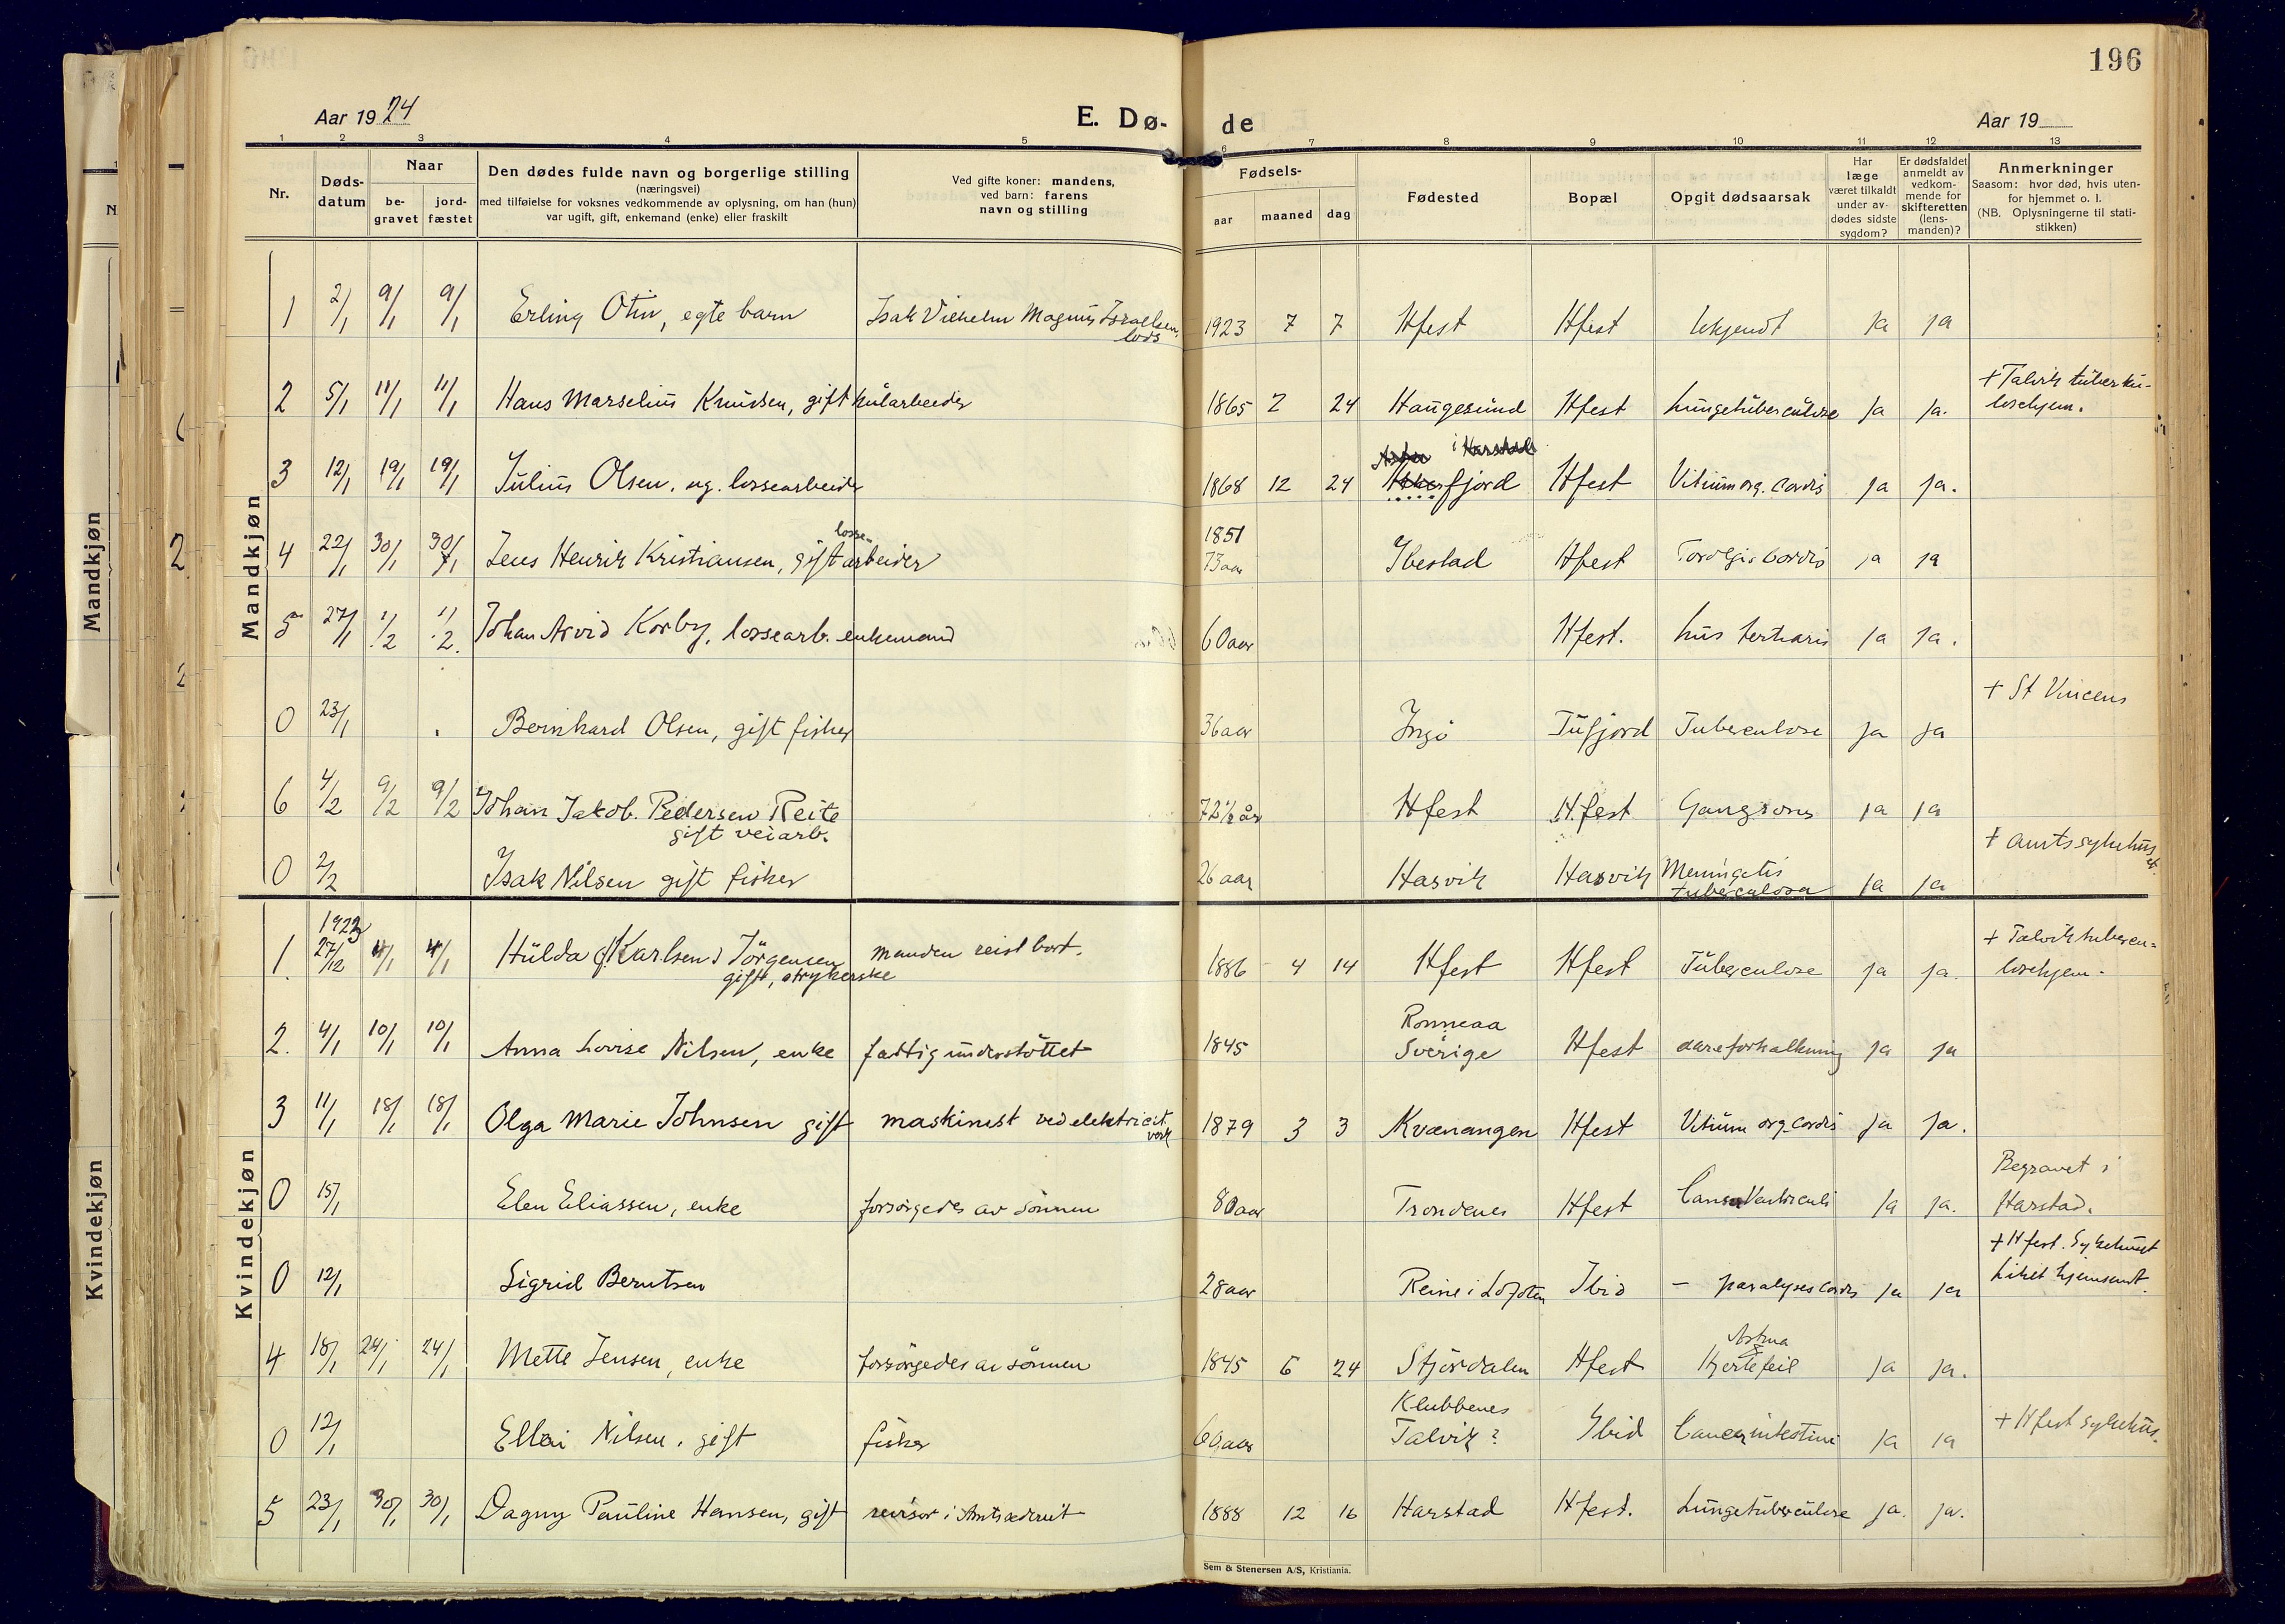 196
Aar 1924
E. Dø-
de
Aar 19
1 2 3 4 5 6 7 8 9 10 11 12 13
Nr.
Døds-
datum
Naar
be-
gravet
jord-
fæstet
Den dødes fulde navn og borgerlige stilling
(næringsvei)
med tilføielse for voksnes vedkommende av oplysning, om han (hun)
var ugift, gift, enkemand (enke) eller fraskilt
Ved gifte koner: mandens,
ved barn: farens
navn og stilling
Fødsels-
aar maaned dag
Fødested
Bopæl
Opgit dødsaarsak
Har
læge
været tilkaldt
under av-
dødes sidste
sygdom?
Er dødsfaldet
anmeldt av
vedkom-
mende for
skifteretten
(lens-
manden)?
Anmerkninger
Saasom: hvor død, hvis uten-
for hjemmet o. l.
(NB. Oplysningerne til stati-
stikken)
Mandkjøn
Mandkjøn
1 2/1 9/1 9/1 Erling Otin, egte barn Isak Vilhelm Magnus Israelsen, 1923 7 7 Hfest Hfest Ukjendt ja ja
lods
+ Talvik tuberku-
2 5/1 11/1 11/1 Hans Marselius Knudsen, gift kularbeider 1865 2 24 Haugesund Hfest Lungetuberculose ja ja. losehjem.
i Harstad
3 12/1 19/1 19/1 Julius Olsen, ug. lossearbeider 1868 12 24 fjord Hfest Vitium org. cordis ja ja.
losse- 1851
4 22/1 30/1 30/1 Jens Henrik Kristiansen, gift arbeider 73 aar Ibestad Hfest cordis ja ja
5 27/1 1/2 1/2. Johan Arvid Korby, lossearb. enkemand 60 aar Hfest. lues tertiaris ja ja.
+ St Vincens
0 23/1 Bernhard Olsen, gift fisker 36 aar Ingö Tufjord Tuberculose ja ja
6 4/2 9/2 9/2 Johan Jakob Pedersen Reite 72 1/2 år Hfest H.fest Gangræns ja ja
gift veiarb.
+ amtssykehus
0 2/2 Isak Nilsen gift fisker 26 aar Hasvik Hasvik Meningitis ja ja
tuberculosa
Kvindekjøn
Kvindekjøn
1923
1. 27/12 4/1 4/1 Hulda Karlsen Jörgensen manden reist bort. 1886 4 14 Hfest Hfest Tuberculose ja ja. + Talvik tubercu-
gift, strykerske losehjem.
Ronneaa
2. 4/1 10/1 10/1 Anna Lovise Nilsen, enke fattigunderstöttet 1845 Sverige Hfest aareforkalkning ja ja
3 11/1 18/1 18/1 Olga Marie Johnsen gift maskinist ved elektricit. 1879 3 3 Kvænangen Hfest Vitium org. cordis ja ja.
verk
Begravet i
0 15/1 Elen Eliassen, enke forsörgedes av sönnen 80 aar Trondenes Hfest Cancer Ventriculi ja ja. Harstad.
+ Hfest. Sykehus
0 12/1 Sigrid Berntsen 28 aar Reine i Lofoten Ibid – paralyses cordis ja ja Liket hjemsendt.
Astma
4 18/1 24/1 24/1 Mette Jensen, enke forsörgedes av sönnen 1845 6 24 Stjördalen Hfest Hjertefeil ja ja.
Klubbenes
0 12/1 Ellai Nilsen, gift fisker 60 aar Talvik? Ibid Cancer intestini ja ja + Hfest sykehus.
5 23/1 30/1 30/1 Dagny Pauline Hansen, gift revisor i 1888 12 16 Harstad Hfest. Lungetuberculose ja. ja.
Sem & Stenersen A/S, Kristiania.